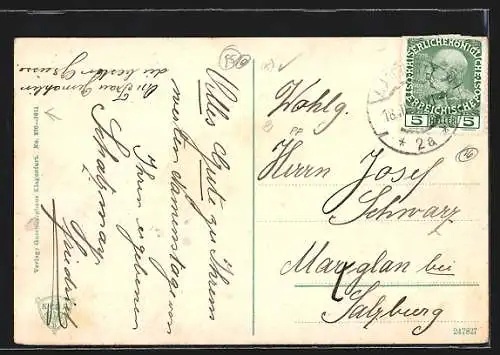 An Frau Gemahlin
die besten Grüsse.
Alles Gute zu Ihrem
werten Namenstage von
Ihrem ergebenen
Friedrich
Verlag: Kunstverlag Klagenfurt. No. 310-1911
5519
Wohlg.
PP
Herrn Josef
Schwarz
Maxglan bei
Salzburg
KAISERLICHEKÖNIGLICHE
ÖSTERREICHISCHE POST
5 HELLER 5
* 2a *
16
247827